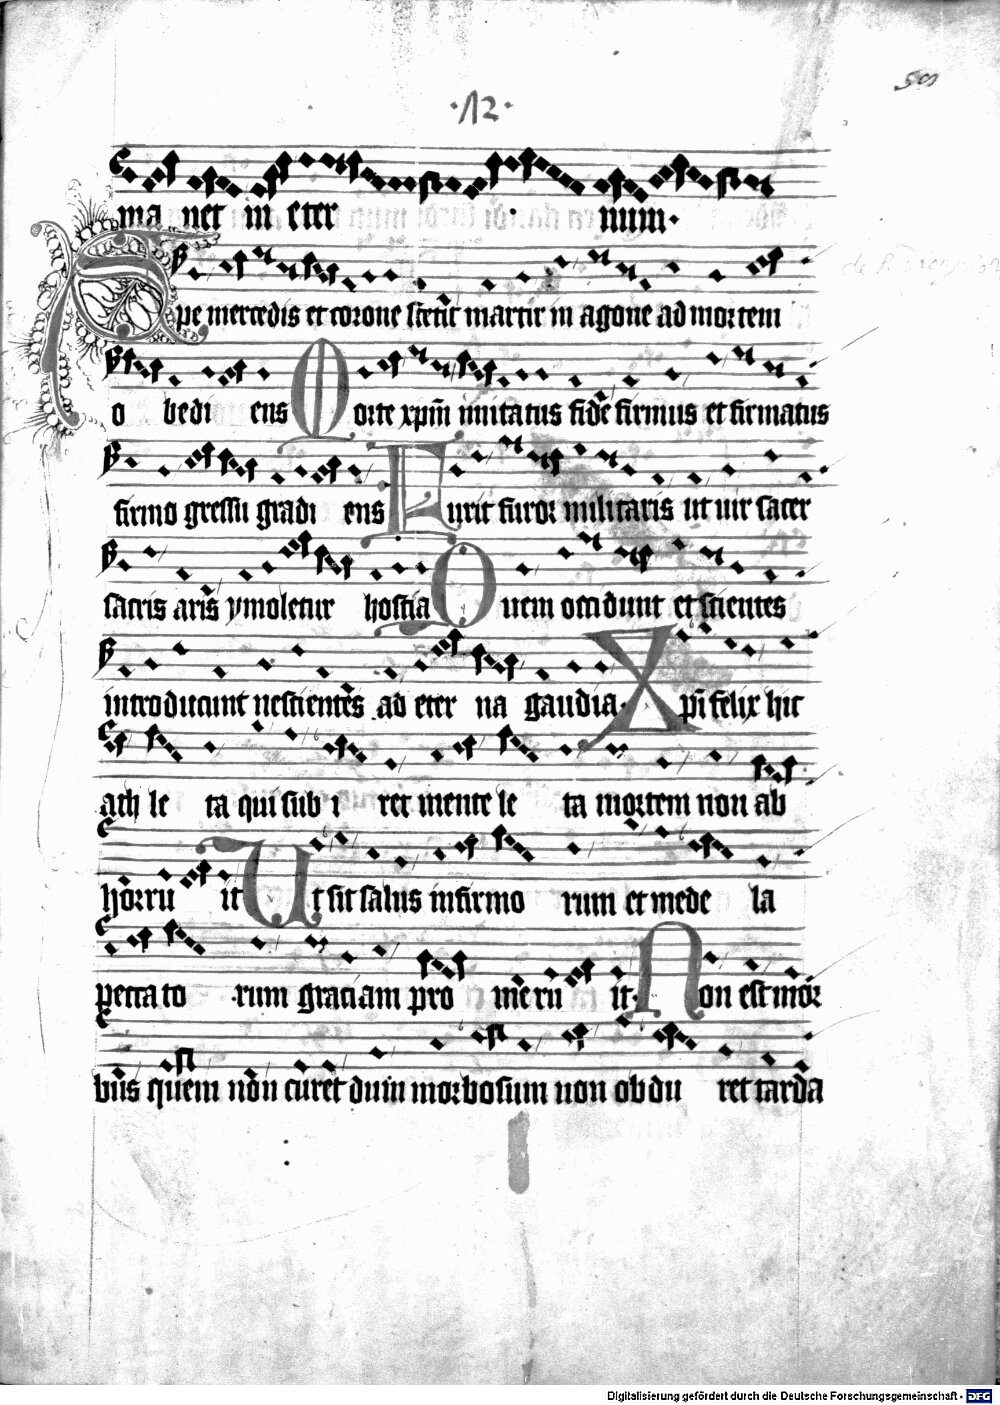 ·12·
ma net in eter num·
Spe mercedis et corone stetit martir in agone ad mortem
o bedi ens Morte xp̄m imitatus fide firmus et firmatus
firmo gressu gradi ens Furit furor militaris ut uir sacer
sacris aris ymoletur hostia Quem occidunt et scientes
introducunt nescientes ad eter na gaudia· Xpī felix hic
ath le ta qui sub i ret mente le ta mortem non ab
horru it Ut sit salus infirmo rum et mede la
pecca to rum graciam pro meru it· Non est mor
bus quem non curet dum morbosum non ob du ret tarda
Digitalisierung gefördert durch die Deutsche Forschungsgemeinschaft - DFG